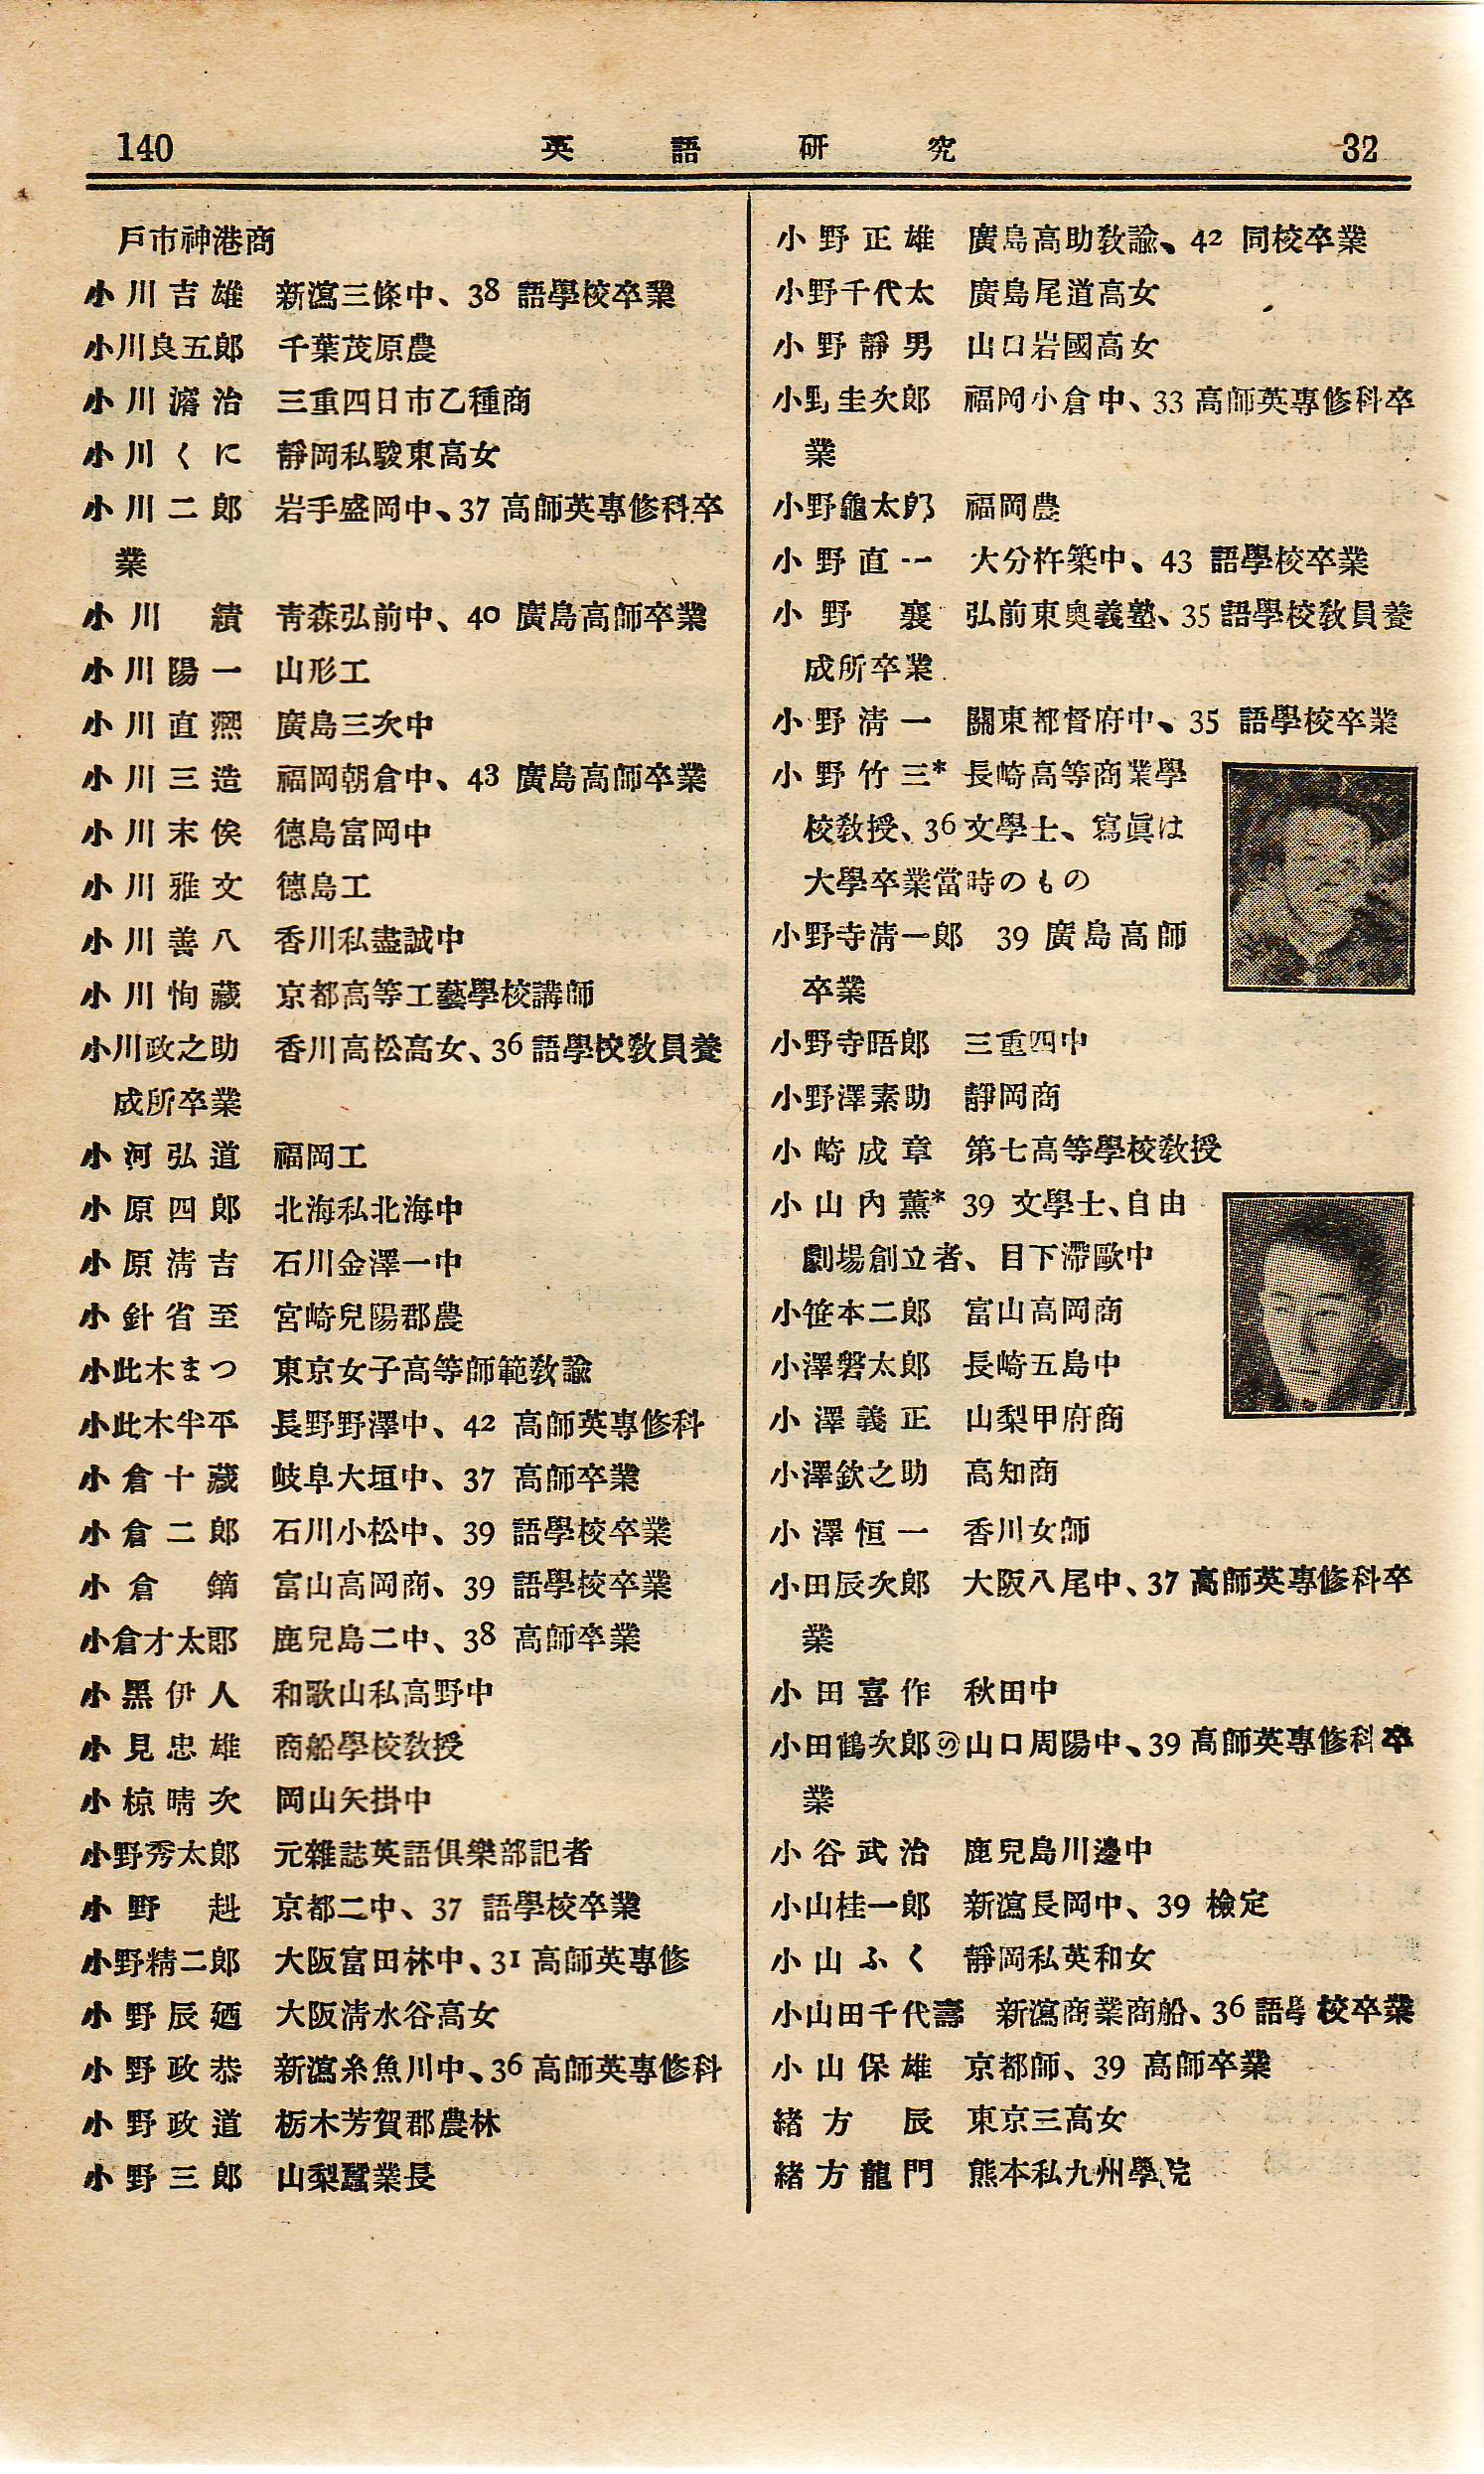 140 英語研究 32
戶市神港商
小川吉雄 新瀉三條中、38 語學校卒業
小川良五郎 千葉茂原農
小川濬治 三重四日市乙種商
小川くに 靜岡私駿東高女
小川二郎 岩手盛岡中、37 高師英專修科卒
業
小川績 靑森弘前中、40 廣島高師卒業
小川陽一 山形工
小川直凞 廣島三次中
小川三造 福岡朝倉中、43 廣島高師卒業
小川末俟 德島富岡中
小川雅文 德島工
小川善八 香川私盡誠中
小川恂藏 京都高等工藝學校講師
小川政之助 香川高松高女、36 語學校敎員養
成所卒業
小河弘道 福岡工
小原四郎 北海私北海中
小原淸吉 石川金澤一中
小針省至 宮崎兒陽郡農
小此木まつ 東京女子高等師範敎諭
小此木半平 長野野澤中、42 高師英專修科
小倉十藏 岐阜大垣中、37 高師卒業
小倉二郎 石川小松中、39 語學校卒業
小倉鏑 富山高岡商、39 語學校卒業
小倉才太郎 鹿兒島二中、38 高師卒業
小黑伊人 和歌山私高野中
小見忠雄 商船學校敎授
小椋晴次 岡山矢掛中
小野秀太郎 元雜誌英語俱樂部記者
小野赳 京都二中、37 語學校卒業
小野精二郎 大阪富田林中、31 高師英專修
小野辰廼 大阪淸水谷高女
小野政恭 新瀉糸魚川中、36 高師英專修科
小野政道 栃木芳賀郡農林
小野三郎 山梨蠶業長
小野正雄 廣島高助敎諭、42 同校卒業
小野千代太 廣島尾道高女
小野靜男 山口岩國高女
小野圭次郎 福岡小倉中、33 高師英專修科卒
業
小野龜太郎 福岡農
小野直一 大分杵築中、43 語學校卒業
小野襄 弘前東奧義塾、35 語學校敎員養
成所卒業
小野淸一 關東都督府中、35 語學校卒業
小野竹三* 長崎高等商業學
校敎授、36 文學士、寫眞は
大學卒業當時のもの
小野寺淸一郎 39 廣島高師
卒業
小野寺晤郎 三重四中
小野澤素助 靜岡商
小崎成章 第七高等學校敎授
小山內薰* 39 文學士、自由
劇場創立者、目下滯歐中
小笹本二郎 富山高岡商
小澤磐太郎 長崎五島中
小澤義正 山梨甲府商
小澤欽之助 高知商
小澤恒一 香川女師
小田辰次郎 大阪八尾中、37 高師英專修科卒
業
小田喜作 秋田中
小田鶴次郎Ⓢ山口周陽中、39 高師英專修科卒
業
小谷武治 鹿兒島川邊中
小山桂一郎 新瀉長岡中、39 檢定
小山ふく 靜岡私英和女
小山田千代壽 新瀉商業商船、36 語學校卒業
小山保雄 京都師、39 高師卒業
緖方辰 東京三高女
緖方龍門 熊本私九州學院